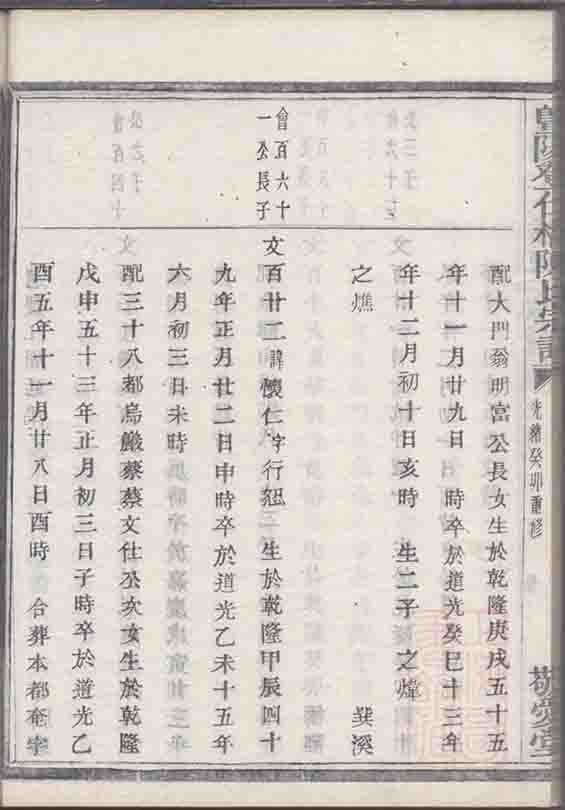 陳氏宗譜
光緒癸卯重修
敬愛堂
配大門翁明富公長女生於乾隆庚戌五十五
年十一月廿九日 時卒於道光癸巳十三年
年十二月初十日亥時 生二子 之煒 巽溪
之燋
會百六十
一公長子
文百廿二諱懷仁字行 生於乾隆甲辰四十
九年正月廿二日申時卒於道光乙未十五年
六月初三日未時
配三十八都烏巖蔡蔡文仕公次女生於乾隆
戊申五十三年正月初三日子時卒於道光乙
酉五年十一月廿八日酉時 合葬本都奄宇